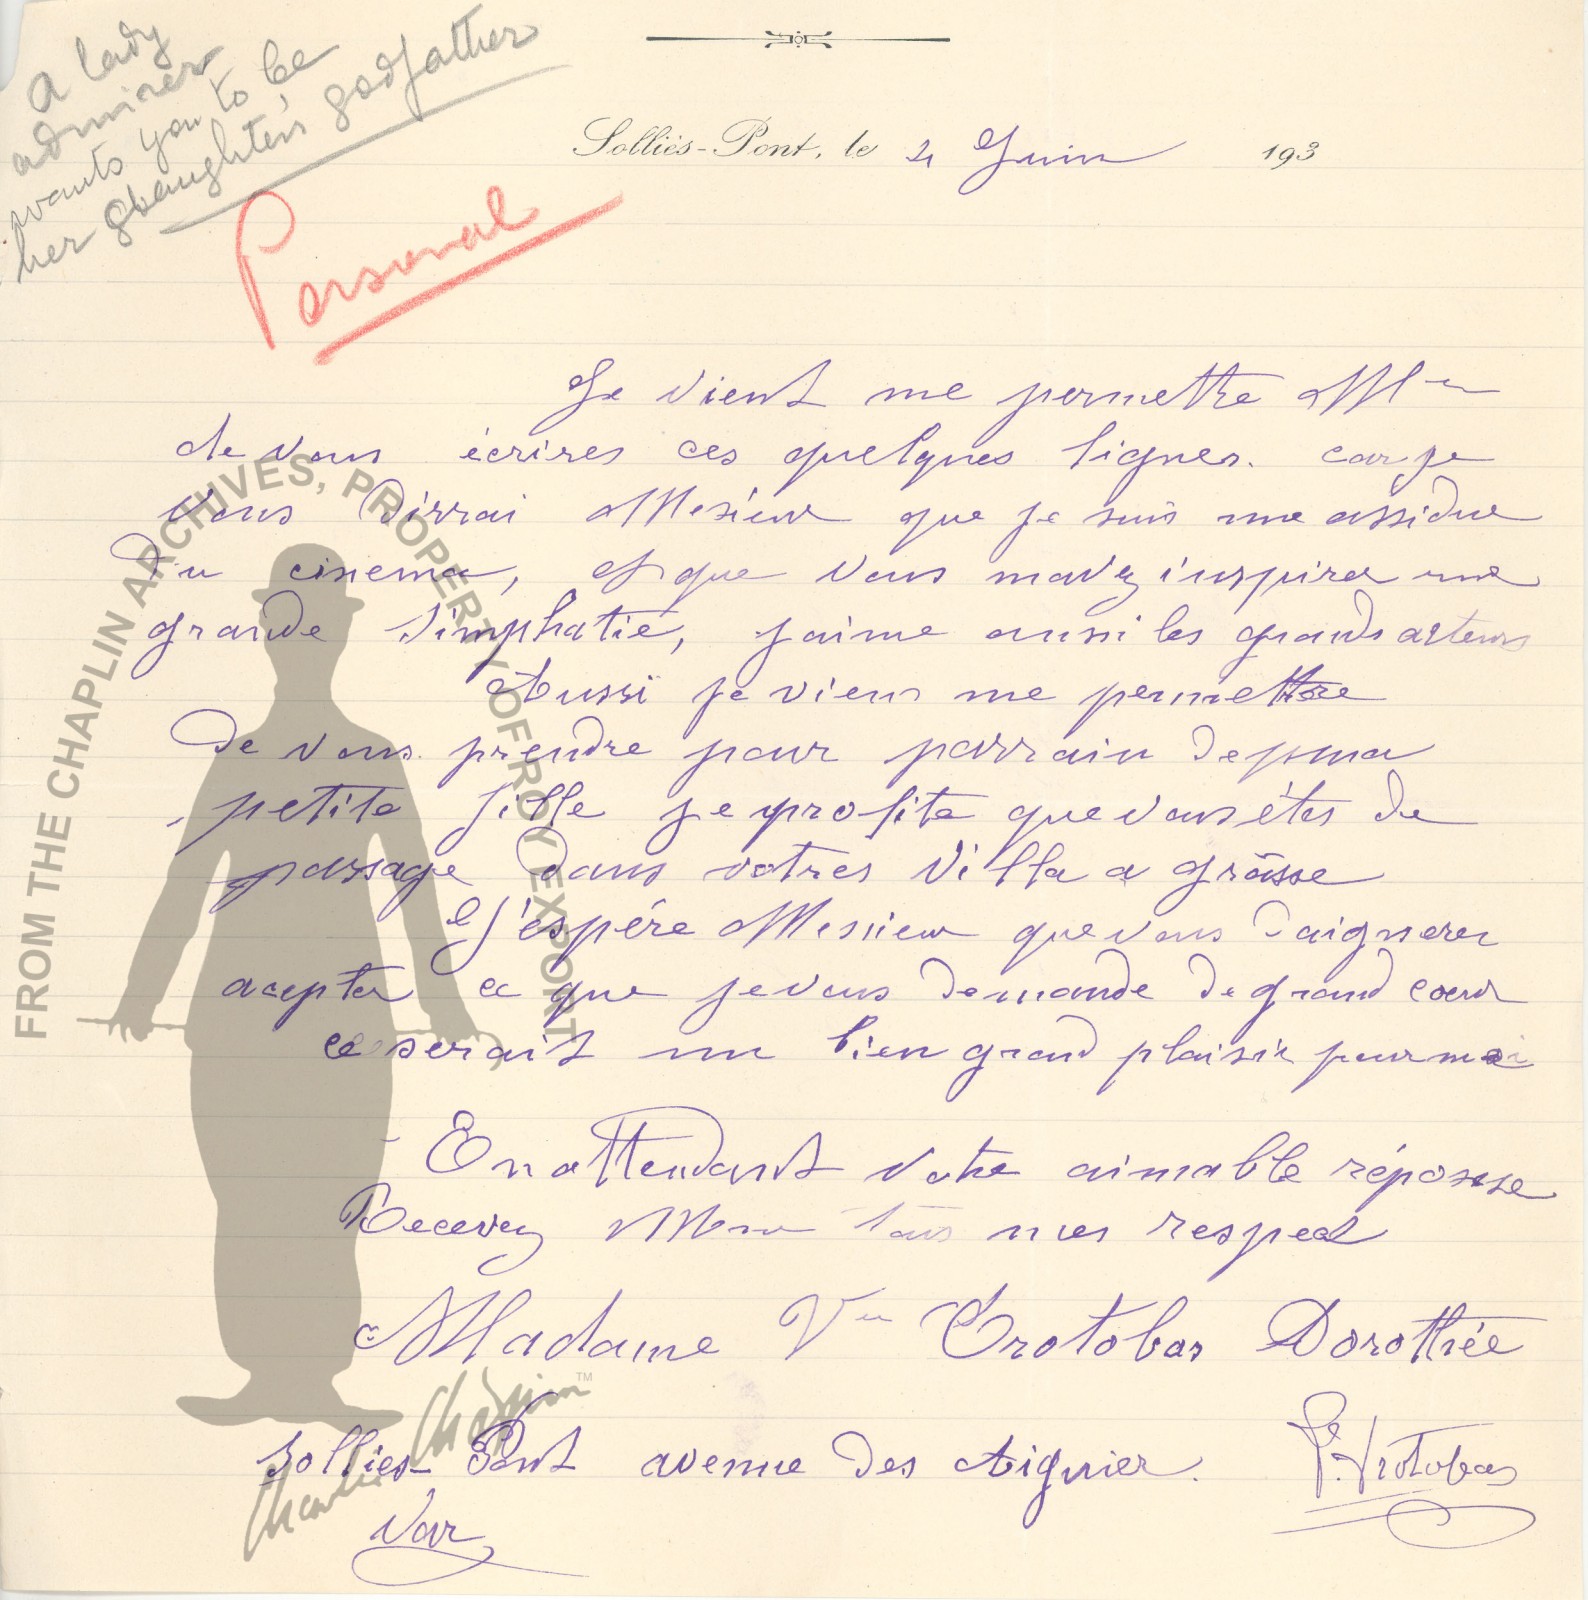 A lady
admirer
wants you to be
her daughter's godfather
Personal
Solliès-Pont, le 4 Juin 193
Je vient me permettre Mr
de vous écrires ces quelques lignes. car je
vous dirrai Mesieur que je suis une assidue
du cinema, et que vous mavez inspirer une
grande simphatie, jaime aussi les grands acteurs
Aussi je viens me permettre
de vous prendre pour parrain de ma
petite fille je profite que vous étes de
passage dans votres villa a Grâsse
J'espére Messieur que vous daignerer
acepter ce que je vous demande de grand coeur
ce serait un bien grand plaisir pour moi
En attendant votre aimable réponsse
Recevez Mr tous mes respect
Madame Vve Trotobas Dorothée
Sollies-Pont avenue des Aiguier.
Var
Trotobas
FROM THE CHAPLIN ARCHIVES, PROPERTY OF ROY EXPORT
Charlie Chaplin™